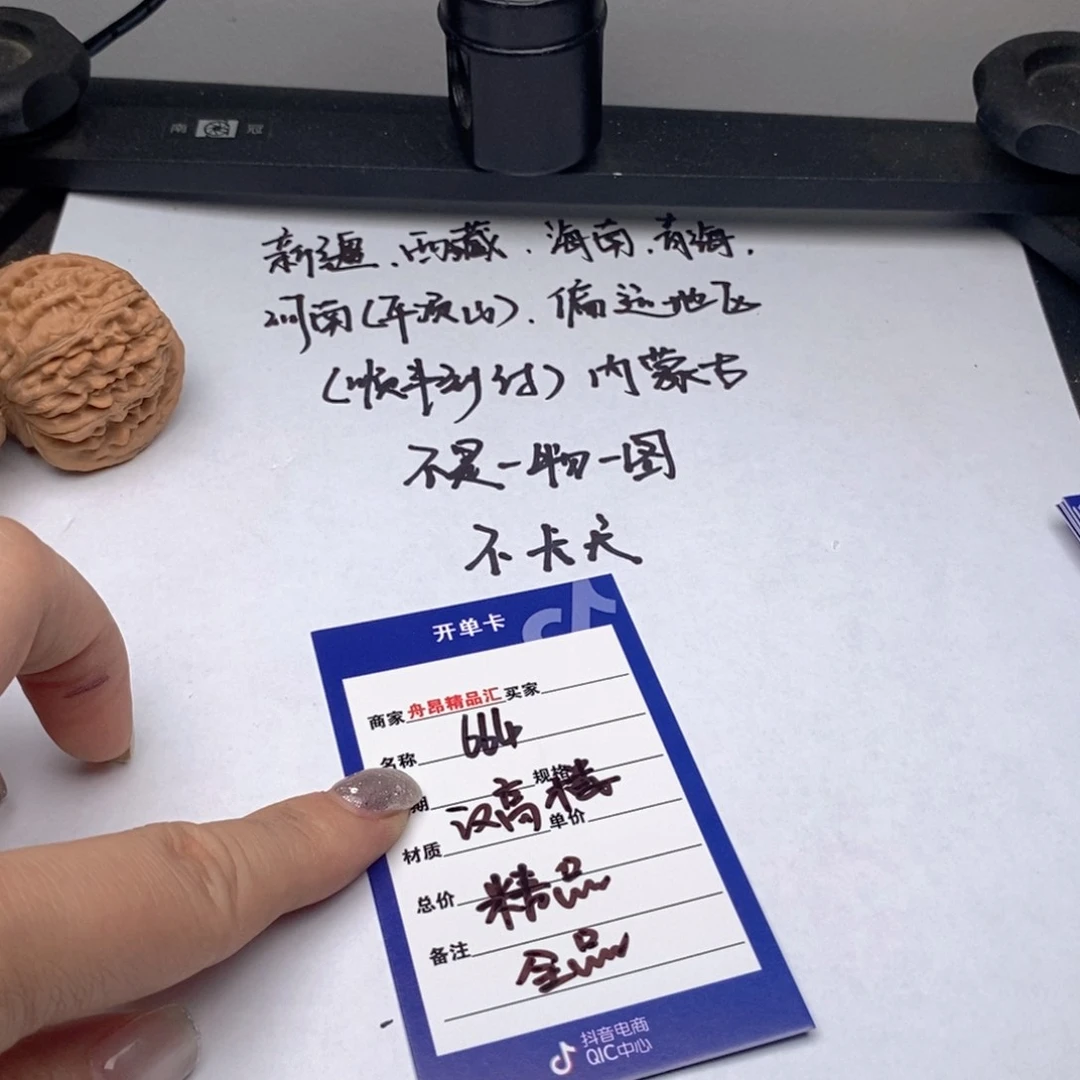 南冠
新疆、西藏、海南、青海、
河南(平顶山)、偏远地区
(顺丰到付)内蒙古
不是一物一图
不卡天
开单卡
商家 舟昂精品汇 买家
名称 664
期 规格
汉高楼
材质 单价
总价 精品
备注 全品
抖音电商
QIC中心